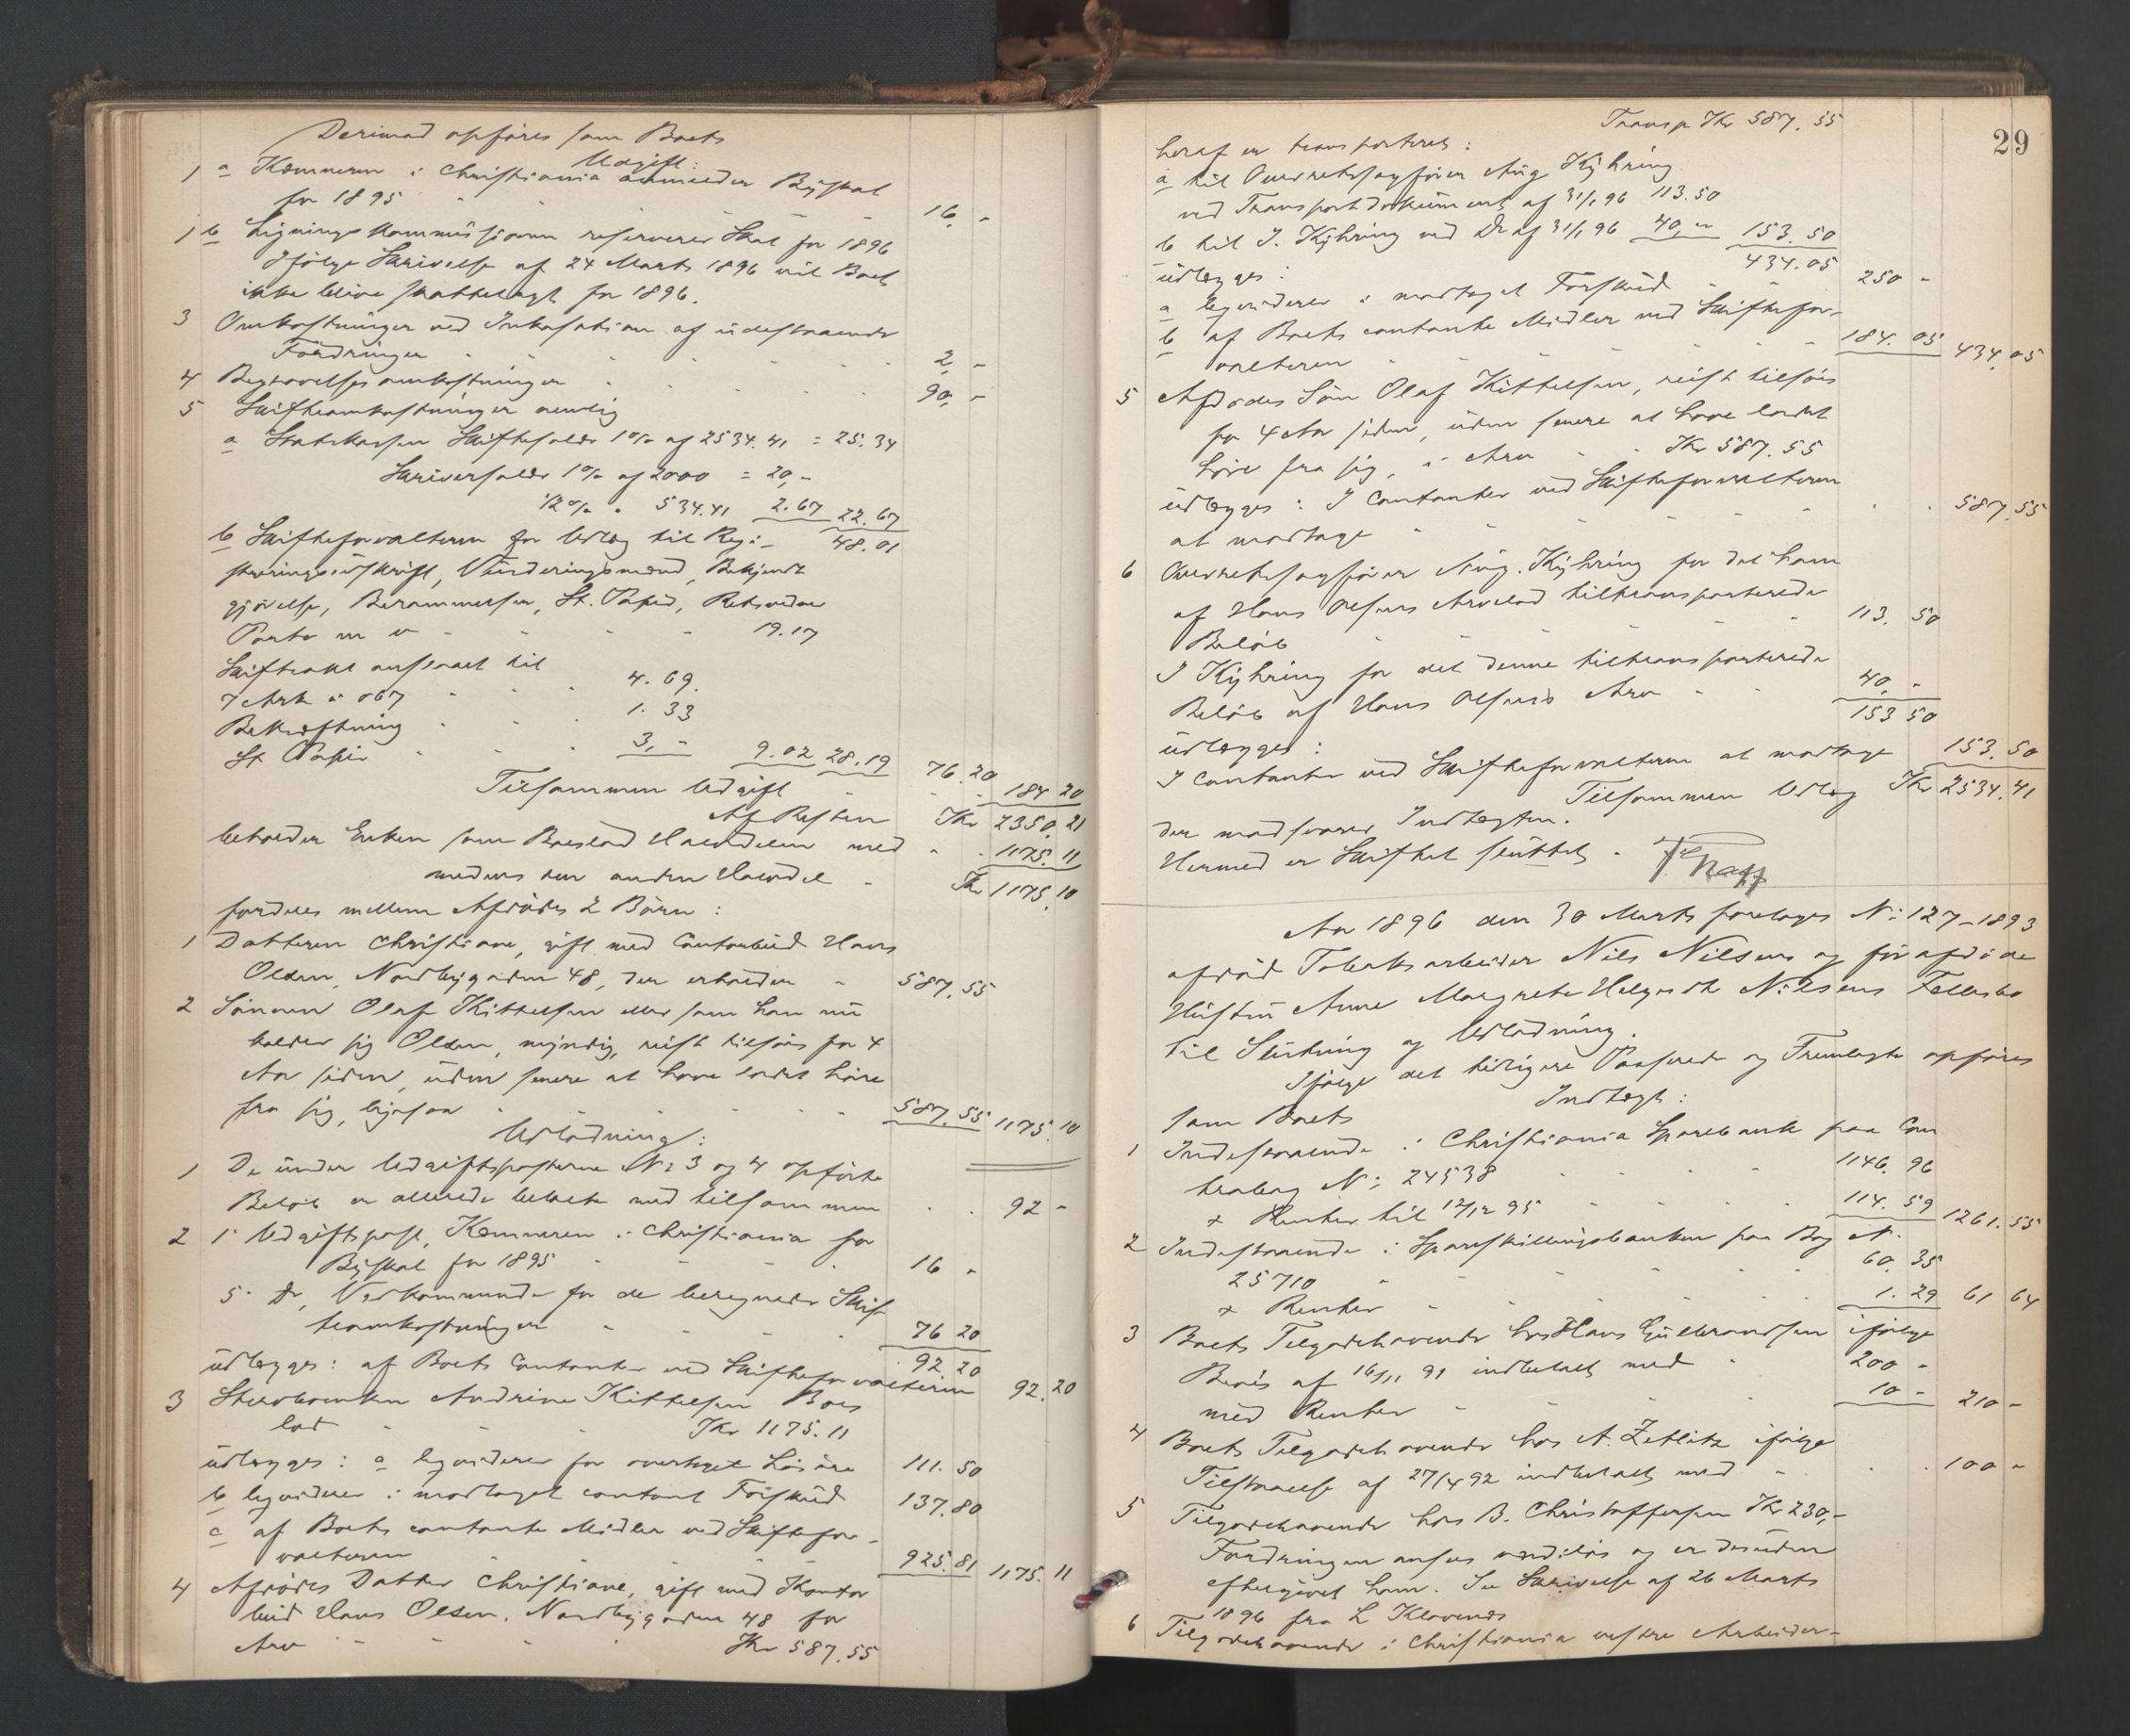 Derimod opføres som Boets
Udgift:
1 a Kæmneren i Christiania anmelder Byskat
for 1895 16,-
1 b Ligningskommissionen reserverer Skat for 1896
Ifølge Skrivelse af 24 Marts 1896 vil Boet
ikke blive skattelagt for 1896.
3 Omkostninger ved Inkasation af udestaaende
Fordringer 2,-
4 Begravelsesomkostninger 90,-
5 Skifteomkostninger nemlig
a Statskassen Skiftesalær 1% af 2534.41 = 25.34
Skriversalær 1% af 2000 = 20,-
1/2% " 534.41 2.67 22.67
b Skifteforvalteren for Udlæg til Regi- 48.01
streringsudskrift, Vurderingsmænd, Bekjendt
gjørelse, Berammelser, St. Papir, Retsvidner
Porto m v 19.17
Skifteakt anslaaet til
7 Ark a 067 4.69.
Bekræftning 1.33
St Papir 3,- 9.02 28.19 76.20
Tilsammen Udgift 184 20
Af Resten Kr 2350.21
beholder Enken som Boeslod Halvdelen med 1175.11
medens den anden Halvdel Kr 1175.10
fordeles mellem Afdødes 2 Børn:
1 Datteren Christiane, gift med Contorbud Hans
Olsen, Nordbygaden 48, der erholder 587.55
2 Sønnen Olaf Kittelsen eller som han nu
kalder sig Olsen, myndig, reist tilsøs for 4
Aar siden, uden senere at have ladet høre
fra sig, ligesaa 587.55 1175.10
Udlodning:
1 De under Udgiftsposterne No 3 og 4 opførte
Beløb er allerede betalte med tilsammen 92 -
2 1. Udgiftspost, Kæmneren i Christiania for
Byskat for 1895 16 -
5. Do, Vedkommende for de beregnede Skif
teomkostninger 76 20
92 20
udlægges: af Boets Contanter ved Skifteforvalteren 92.20
3 Stervboenken Andrine Kittelsen Boes
lod Kr 1175.11
udlægges: a liqviderer for overtaget Løsøre 111.50
b liqviderer i modtaget contant Forskud 137.80
c af Boets contante Midler ved Skiftefor-
valteren 925.81 1175.11
4 Afdødes Datter Christiane, gift med Kontor
bud Hans Olsen, Nordbygaden 48 for
Arv Kr 587.55
29
Transp Kr 587.55
heraf er transporteret:
a til Overretssagfører Aug Kyhring
ved Transportdokument af 31/1 96 113.50
b til J. Kyhring ved Do af 31/1 96 40,- 153.50
434.05
udlægges:
a liqviderer i modtaget Forskud 250 -
b af Boets contante Midler ved Skiftefor-
valteren 184.05 434.05
5 Afdødes Søn Olaf Kittelsen, reist tilsøs
for 4 Aar siden, uden senere at have ladet
høre fra sig, i Arv Kr 587.55
udlægges: I Contanter ved Skifteforvalteren
at modtage 587.55
6 Overretssagfører Aug. Kyhring for det ham
af Hans Olsens Arvelod tiltransporterede
Beløb 113.50
J Kyhring for det denne tiltransporterede
Beløb af Hans Olsens Arv 40,-
153 50
udlægges:
I Contanter ved Skifteforvalteren at modtage 153.50
Tilsammen Udlæg Kr 2534.41
der modsvarer Indtægten.
Hermed er Skiftet sluttet.
Aar 1896 den 30 Marts foretoges No 127-1893
afdød Tobaksarbeider Nils Nilsens og før afdøde
Hustru Anne Margrethe Helgesdtr Nilsens Fællesbo
til Slutning og Udlodning.
Ifølge det tidligere Passerede og Fremlagte opføres
som Boets Indtægt:
1 Indestaaende i Christiania Sparebank paa Con
trabog No 24538 1146.96
+ Renter til 12/12 95 114.59 1261.55
2 Indestaaende i Spareskillingsbanken paa Bog No
25710 60.35
+ Renter 1.29 61 64
3 Boets Tilgodehavende hos Hans Gulbrandsen ifølge
Bevis af 16/11 91 indbetalt med 200 -
med Renter 10 - 210 -
4 Boets Tilgodehavende hos A. Zetlitz ifølge
Tilstaaelse af 27/4 92 indbetalt med 100 -
5 Tilgodehavende hos B. Christoffersen Kr 230,-
Fordringen ansees værdiløs og er desuden
eftergivet ham. Se Skrivelse af 26 Marts
1896 fra L Klavenes
6 Tilgodehavende i Christiania vestre Arbeider-